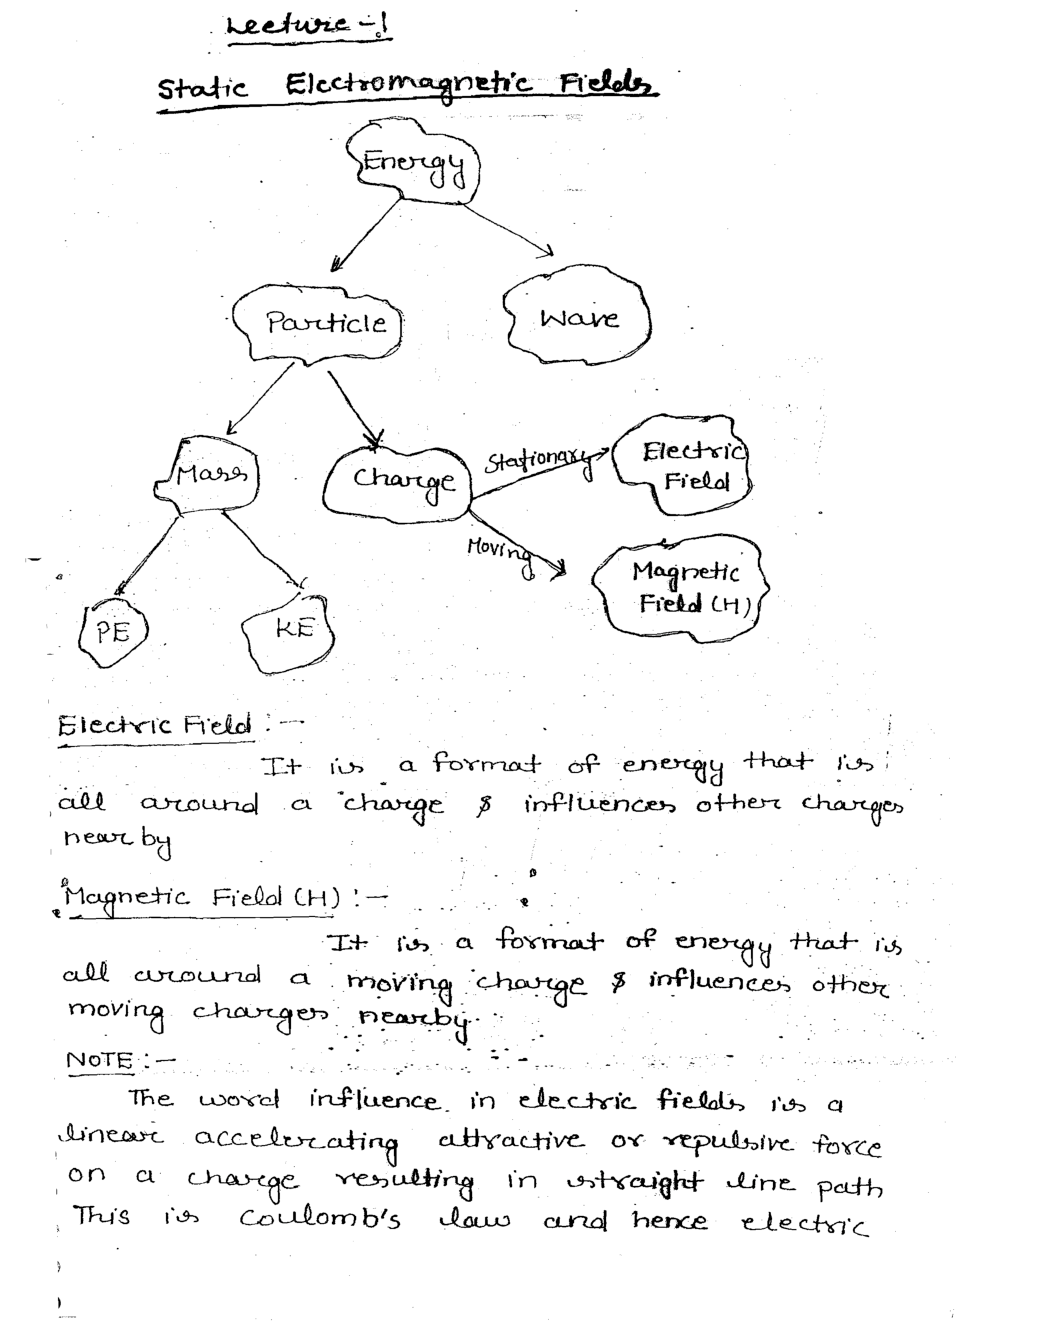 Lecture - 1
Static Electromagnetic Fields
Energy
Particle
Wave
Mass
Charge
Stationary
Electric
Field
Moving
Magnetic
Field (H)
PE
KE
Electric Field :-
It is a format of energy that is
all around a charge & influences other charges
near by
Magnetic Field (H) :-
It is a format of energy that is
all around a moving charge & influences other
moving charges nearby.
NOTE :-
The word influence in electric fields is a
linear accelerating attractive or repulsive force
on a charge resulting in straight line path
This is Coulomb's law and hence electric